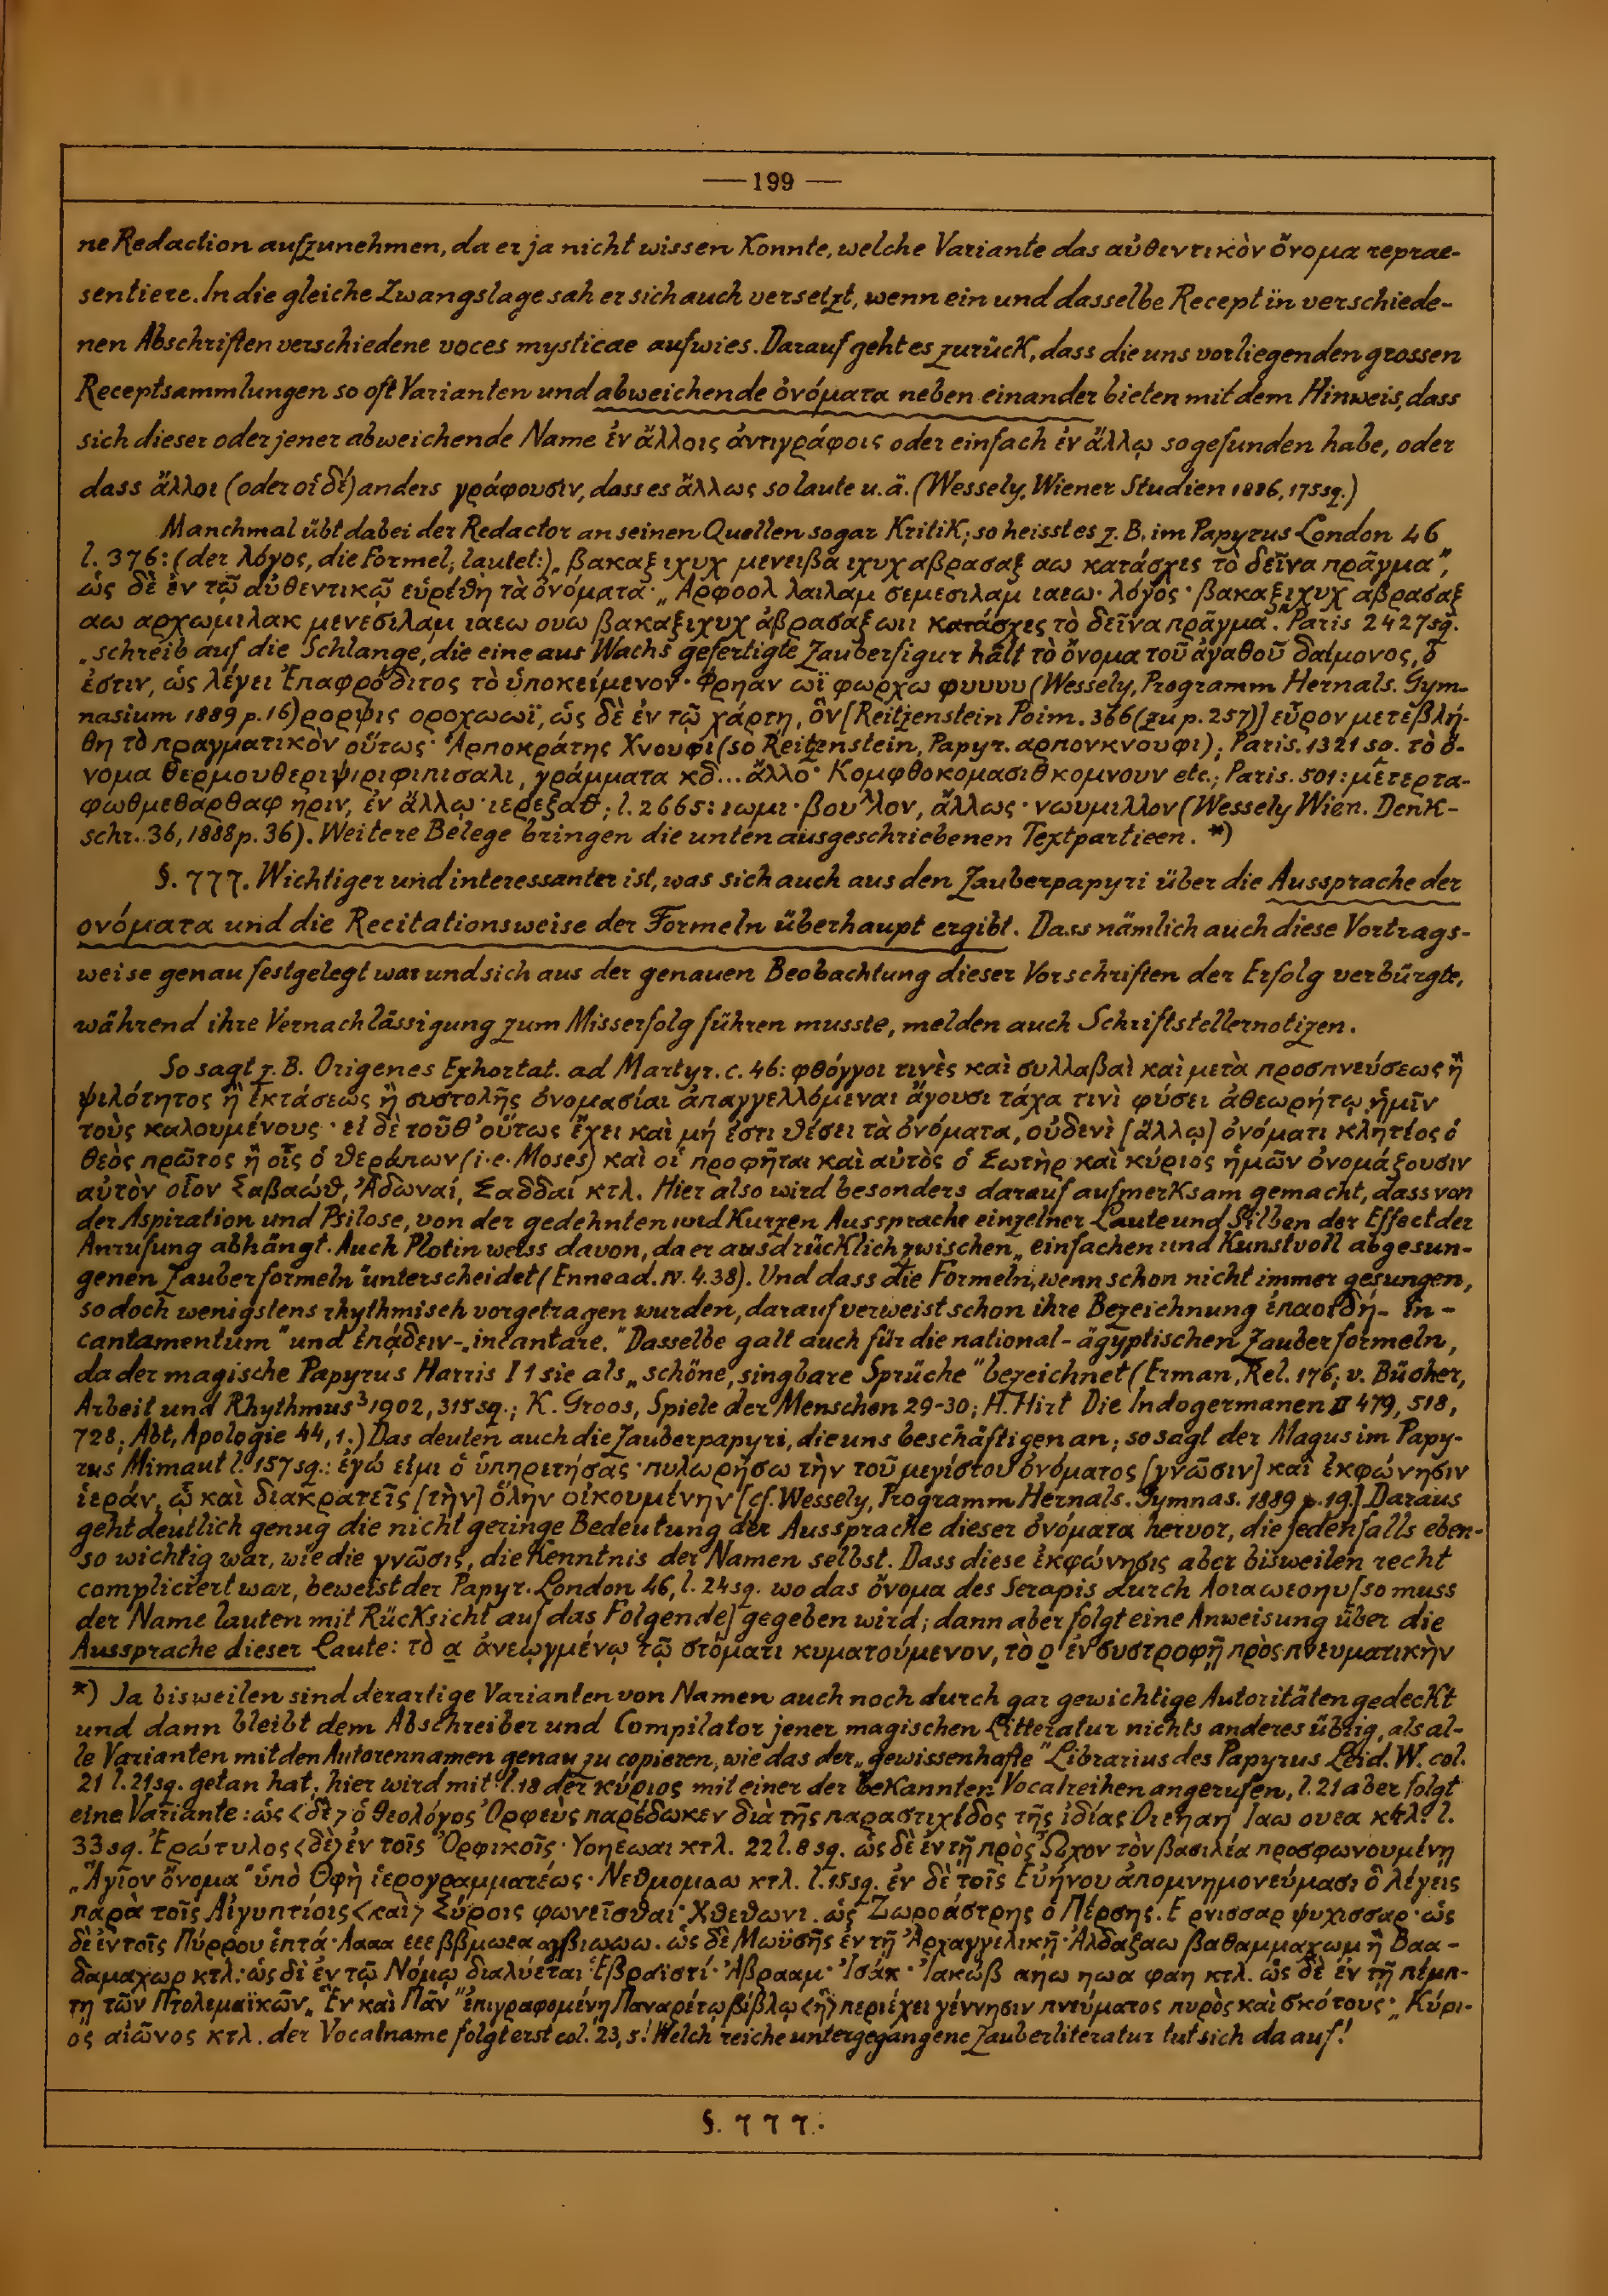 — 199 —
ne Redaction aufzunehmen, da er ja nicht wissen konnte, welche Variante das αὐθεντικὸν ὄνομα reprae-
sentiere. In die gleiche Zwangslage sah er sich auch versetzt, wenn ein und dasselbe Recept in verschiede-
nen Abschriften verschiedene voces mysticae aufwies. Darauf geht es zurück, dass die uns vorliegenden grossen
Receptsammlungen so oft Varianten und abweichende ὀνόματα neben einander bieten mit dem Hinweis, dass
sich dieser oder jener abweichende Name ἐν ἄλλοις ἀντιγράφοις oder einfach ἐν ἄλλῳ so gefunden habe, oder
dass ἄλλοι (oder οἱ δὲ) anders γράφουσιν, dass es ἄλλως so laute u. ä. (Wessely, Wiener Studien 1886, 175 sq.)
Manchmal übt dabei der Redactor an seinen Quellen sogar Kritik; so heisst es z. B. im Papyrus London 46
l. 376: (der λόγος, die Formel, lautet:) „βακαξιχυχ μενειβα ιχυχ αβρασαξ αω κατάσχες τὸ δεῖνα πρᾶγμα",
ὡς δὲ ἐν τῷ αὐθεντικῷ εὑρέθη τὰ ὀνόματα· „Αρφοολ λαιλαμ σεμεσιλαμ ιαεω· λόγος· βακαξιχυχ αβρασαξ
αω αρχωμιλακ μενεσιλαμ ιαεω ουω βακαξιχυχ ἀβρασάξ ωιι κατάσχες τὸ δεῖνα πρᾶγμα". Paris 2427 sq.
„schreib auf die Schlange, die eine aus Wachs gefertigte Zauberfigur hält τὸ ὄνομα τοῦ ἀγαθοῦ δαίμονος, ὅ
ἐστιν, ὡς λέγει Ἐπαφρόδιτος τὸ ὑποκείμενον· Φρηαν ωϊ φωρχω φυυυυ (Wessely, Programm Hernals. Gym-
nasium 1889 p. 16) ρορψις οροχωωϊ, ὡς δὲ ἐν τῷ χάρτῃ, ὃν [Reitzenstein Poim. 366 (zu p. 257)] εὗρον μετεβλή-
θη τὸ πραγματικὸν οὕτως· Ἁρποκράτης Χνουφι (so Reitzenstein, Papyr. αρπονκνουφι); Paris. 1321 sq. τὸ ὄ-
νομα θερμουθεριψιριφιπισαλι, γράμματα κδ... ἄλλο· Κομφθοκομασιθ κομνουν etc.; Paris. 501: μετερτα-
φωθμεθαρθαφ ηριν, ἐν ἄλλῳ· ιερεξαθ; l. 2665: ιωμι· βουλλον, ἄλλως· νωυμιλλον (Wessely Wien. Denk-
schr. 36, 1888 p. 36). Weitere Belege bringen die unten ausgeschriebenen Textpartieen. *)
§. 777. Wichtiger und interessanter ist, was sich auch aus den Zauberpapyri über die Aussprache der
ονόματα und die Recitationsweise der Formeln überhaupt ergibt. Dass nämlich auch diese Vortrags-
weise genau festgelegt war und sich aus der genauen Beobachtung dieser Vorschriften der Erfolg verbürgte,
während ihre Vernachlässigung zum Misserfolg führen musste, melden auch Schriftstellernotizen.
So sagt z. B. Origenes Exhortat. ad Martyr. c. 46: φθόγγοι τινὲς καὶ συλλαβαὶ καὶ μετὰ προσπνεύσεως ἢ
ψιλότητος ἢ ἐκτάσεως ἢ συστολῆς ὀνομασίαι ἀπαγγελλόμεναι ἄγουσι τάχα τινὶ φύσει ἀθεωρήτῳ ἡμῖν
τοὺς καλουμένους· εἰ δὲ τοῦθ' οὕτως ἔχει καὶ μή ἐστι θέσει τὰ ὀνόματα, οὐδενὶ [ἄλλῳ] ὀνόματι κλητέος ὁ
θεὸς πρῶτος ἢ οἷς ὁ θεράπων (i. e. Moses) καὶ οἱ προφῆται καὶ αὐτὸς ὁ Σωτὴρ καὶ κύριος ἡμῶν ὀνομάζουσιν
αὐτὸν οἷον Σαβαώθ, Ἀδωναί, Σαδδαί κτλ. Hier also wird besonders darauf aufmerksam gemacht, dass von
der Aspiration und Psilose, von der gedehnten und kurzen Aussprache einzelner Laute und Silben der Effect der
Anrufung abhängt. Auch Plotin weiss davon, da er ausdrücklich zwischen „einfachen und kunstvoll abgesun-
genen Zauberformeln" unterscheidet (Ennead. IV. 4.38). Und dass die Formeln, wenn schon nicht immer gesungen,
so doch wenigstens rhythmisch vorgetragen wurden, darauf verweist schon ihre Bezeichnung ἐπαοιδή- „in-
cantamentum" und ἐπᾴδειν-„incantare." Dasselbe galt auch für die national-ägyptischen Zauberformeln,
da der magische Papyrus Harris I 1 sie als „schöne, singbare Sprüche" bezeichnet (Erman, Rel. 176; v. Bücher,
Arbeit und Rhythmus³ 1902, 315 sq.; K. Groos, Spiele der Menschen 29-30; H. Hirt Die Indogermanen II 479, 518,
728; Abt, Apologie 44, 1.) Das deuten auch die Zauberpapyri, die uns beschäftigen an; so sagt der Magus im Papy-
rus Mimaut l. 157 sq.: ἐγώ εἰμι ὁ ὑπηρετήσας· πυλωρήσω τὴν τοῦ μεγίστου ὀνόματος [γνῶσιν] καὶ ἐκφώνησιν
ἱεράν, ᾧ καὶ διακρατεῖς [τὴν] ὅλην οἰκουμένην [cf. Wessely, Programm Hernals. Gymnas. 1889 p. 19.] Daraus
geht deutlich genug die nicht geringe Bedeutung der Aussprache dieser ὀνόματα hervor, die jedenfalls eben-
so wichtig war, wie die γνῶσις, die Kenntnis der Namen selbst. Dass diese ἐκφώνησις aber bisweilen recht
compliciert war, beweist der Papyr. London 46, l. 24 sq. wo das ὄνομα des Serapis durch Αοιαωεοηυ [so muss
der Name lauten mit Rücksicht auf das Folgende] gegeben wird; dann aber folgt eine Anweisung über die
Aussprache dieser Laute: τὸ α ἀνεῳγμένῳ τῷ στόματι κυματούμενον, τὸ ο ἐν συστροφῇ πρὸς πνευματικὴν
*) Ja bisweilen sind derartige Varianten von Namen auch noch durch gar gewichtige Autoritäten gedeckt
und dann bleibt dem Abschreiber und Compilator jener magischen Litteratur nichts anderes übrig, als al-
le Varianten mit den Autorennamen genau zu copieren, wie das der „gewissenhafte" Librarius des Papyrus Leid. W. col.
21 l. 21 sq. getan hat; hier wird mit l. 18 der κύριος mit einer der bekannten Vocalreihen angerufen, l. 21 aber folgt
eine Variante: ὡς <δὲ> ὁ θεολόγος Ὀρφεὺς παρέδωκεν διὰ τῆς παραστιχίδος τῆς ἰδίας Οιεηαη Ιαω ουεα κτλ. l.
33 sq. Ἐρώτυλος <δὲ> ἐν τοῖς Ὀρφικοῖς· Υοηέωαι κτλ. 22 l. 8 sq. ὡς δὲ ἐν τῇ πρὸς Ὦχον τὸν βασιλέα προσφωνουμένῃ
„Ἅγιον ὄνομα" ὑπὸ Θφὴ ἱερογραμματέως· Νεθμομαω κτλ. l. 15 sq. ἐν δὲ τοῖς Εὐήνου ἀπομνημονεύμασι ὃ λέγεις
παρὰ τοῖς Αἰγυπτίοις <καὶ> Σύροις φωνεῖσθαι· Χθεθωνι. ὡς Ζωροάστρης ὁ Πέρσης. Ε ρνισσαρ ψυχισσαρ· ὡς
δὲ ἐν τοῖς Πύρρου ἑπτά· Ααaα εεε ββμωεα βιωωω. ὡς δὲ Μωϋσῆς ἐν τῇ Ἀρχαγγελικῇ· Ἀλδαζαω βαθαμμαχωμ ἢ Βαα-
δαμαχωρ κτλ: ὡς δὲ ἐν τῷ Νόμῳ διαλύεται Ἑβραϊστί· Ἀβρααμ· Ἰσάκ· Ἰακώβ αηω ηωα φαη κτλ. ὡς δὲ ἐν τῇ πέμπ-
τῃ τῶν Πτολεμαϊκῶν „Ἓν καὶ Πᾶν" ἐπιγραφομένῃ Παναρέτῳ βίβλῳ <ἣ> περιέχει γέννησιν πνεύματος πυρὸς καὶ σκότους· „Κύρι-
ος αἰῶνος κτλ. der Vocalname folgt erst col. 23, 5! Welch reiche untergegangene Zauberliteratur tut sich da auf!
§. 777.